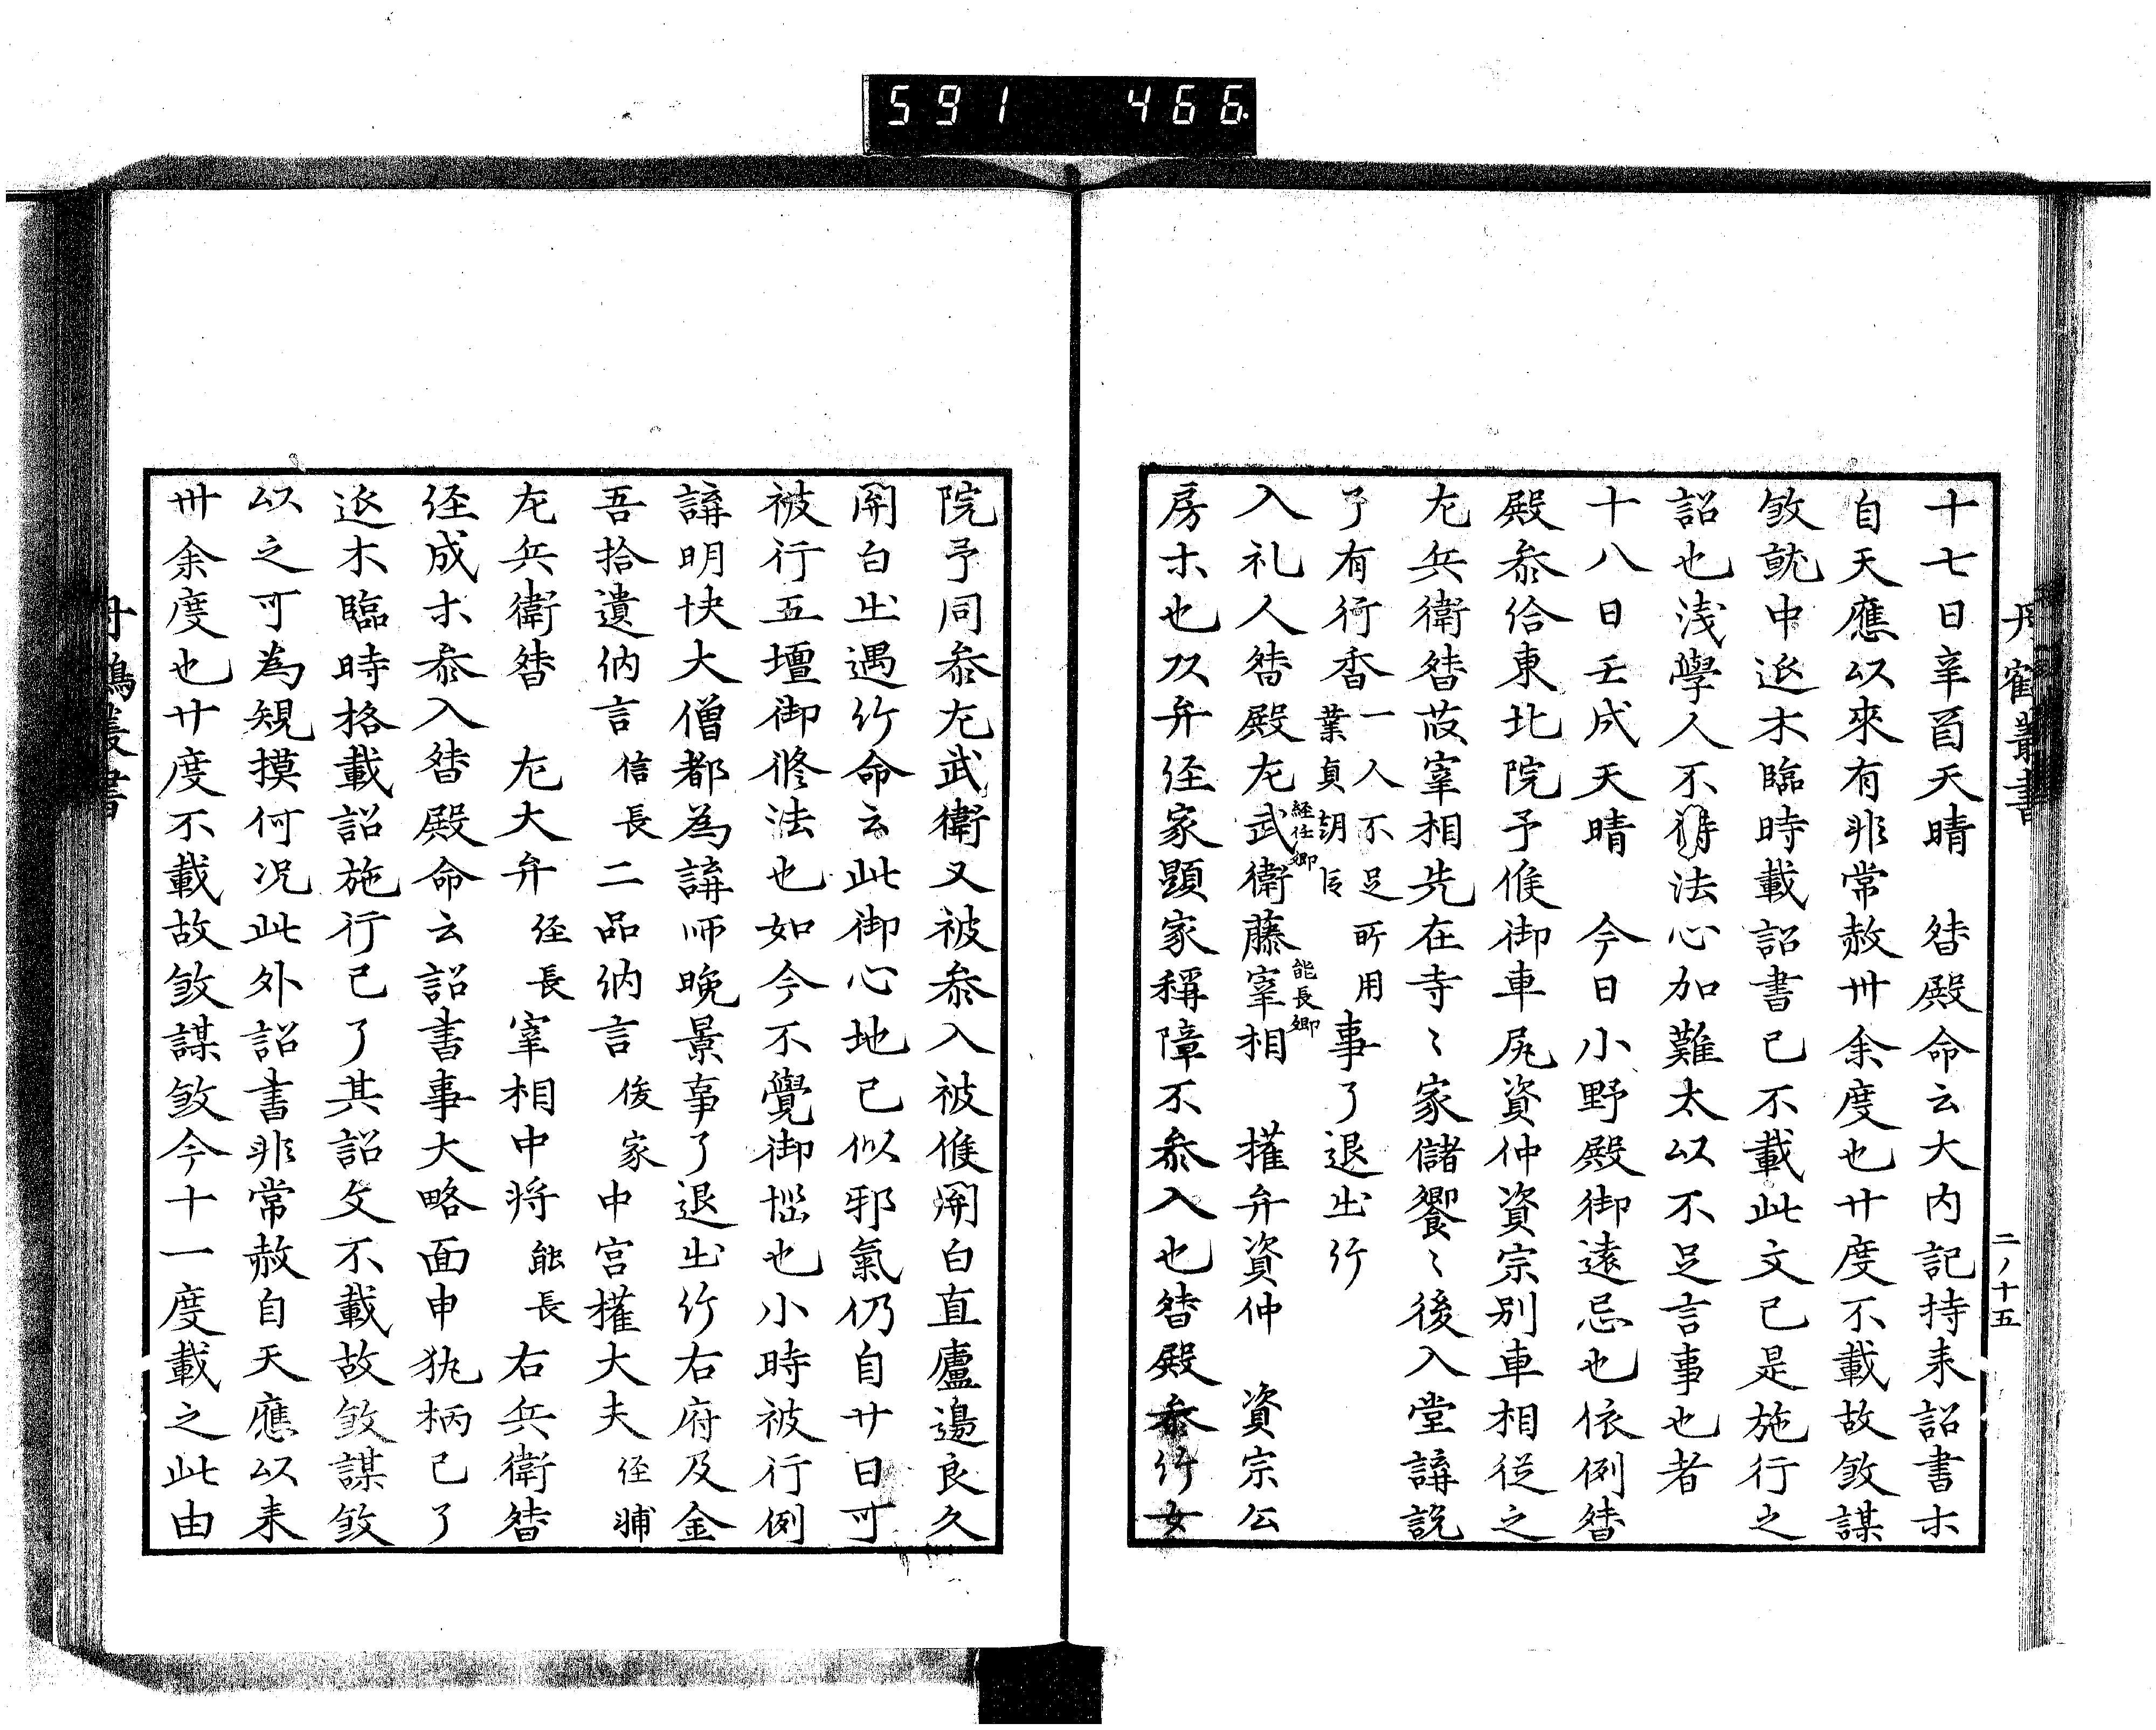 591 466
丹鶴叢書
二ノ十五
十七日辛酉天晴 㫪殿命云大内記持来詔書木
自天應以來有非常赦卅余度也廿度不載故敘謀
敘就中近木臨時載詔書已不載此文已是施行之
詔也浅學人不得法心加難太以不足言事也者
十八日壬戌天晴 今日小野殿御遠忌也依例㫪
殿参佮東北院予候御車尻資仲資宗別車相従之
左兵衛㫪莜宰相先在寺〻家儲饗〻後入堂講説
了有行香一人不足所用業貞朝臣事了退出行
入礼人㫪殿左武衛経仕卿藤宰相能長卿 権弁資仲 資宗公
房木也及弁経家顕家稱障不参入也㫪殿参行女
院予同参左武衛又被参入被候関白直廬邊良久
関白出遇行命云此御心地已似邪氣仍自廿日可
被行五壇御修法也如今不覺御悩也小時被行例
講明快大僧都為講師晩景事了退出行右府及金
吾拾遺納言信長二品納言俊家中宮権大夫経輔
左兵衛㫪 左大弁経長宰相中将能長右兵衛㫪
経成木参入㫪殿命云詔書事大略面申執柄已了
近木臨時格載詔施行已了其詔文不載故敘謀敘
以之可為規摸何况此外詔書非常赦自天應以来
卅余度也廿度不載故敘謀敘今十一度載之此由
丹鶴叢書